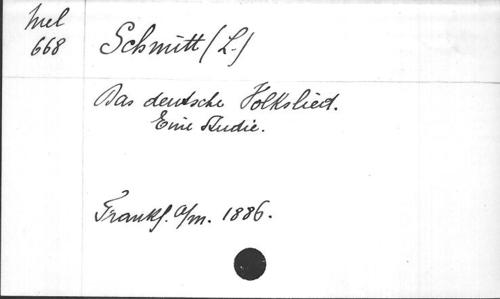 Mel
668
Schmitt (L.)
Das deutsche Volkslied.
Eine Studie.
Frankf. a/m. 1886.